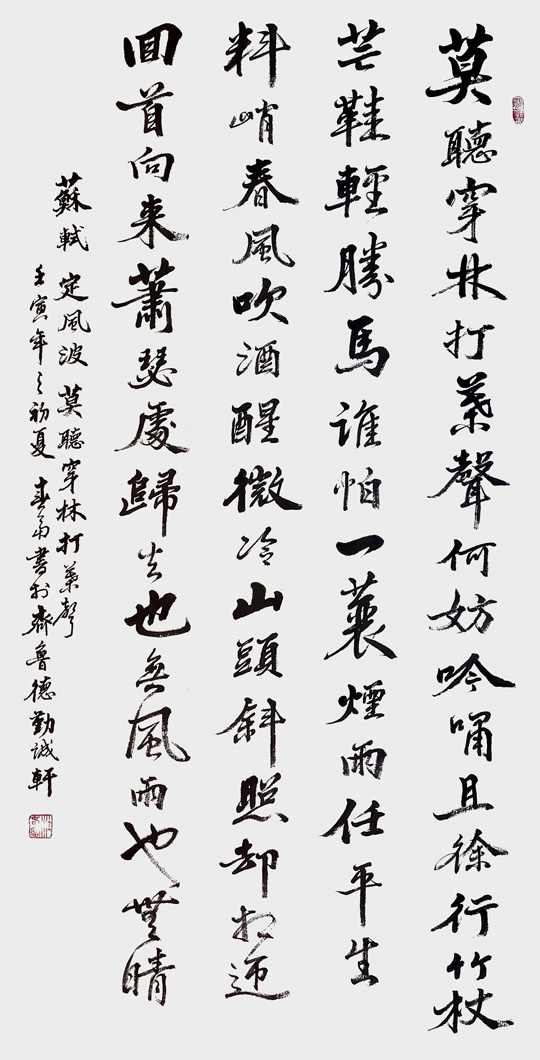 莫聽穿林打葉聲何妨吟嘯且徐行竹杖
芒鞋輕勝馬誰怕一蓑煙雨任平生
料峭春風吹酒醒微冷山頭斜照却相迎
回首向来蕭瑟處歸去也無風雨也無晴
蘇軾 定風波 莫聽穿林打葉聲
壬寅年之初夏 春 書於齊魯德勤誠軒